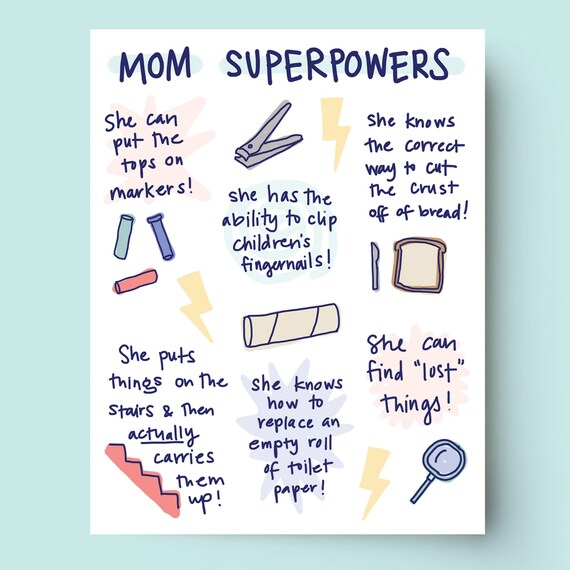 MOM SUPERPOWERS
She can
put the
tops on
markers!
she has the
ability to clip
children's
fingernails!
she knows
the correct
way to cut
the crust
off of bread!
She puts
things on the
stairs & then
actually
carries
them
up!
she knows
how to
replace an
empty roll
of toilet
paper!
She can
find "lost"
things!